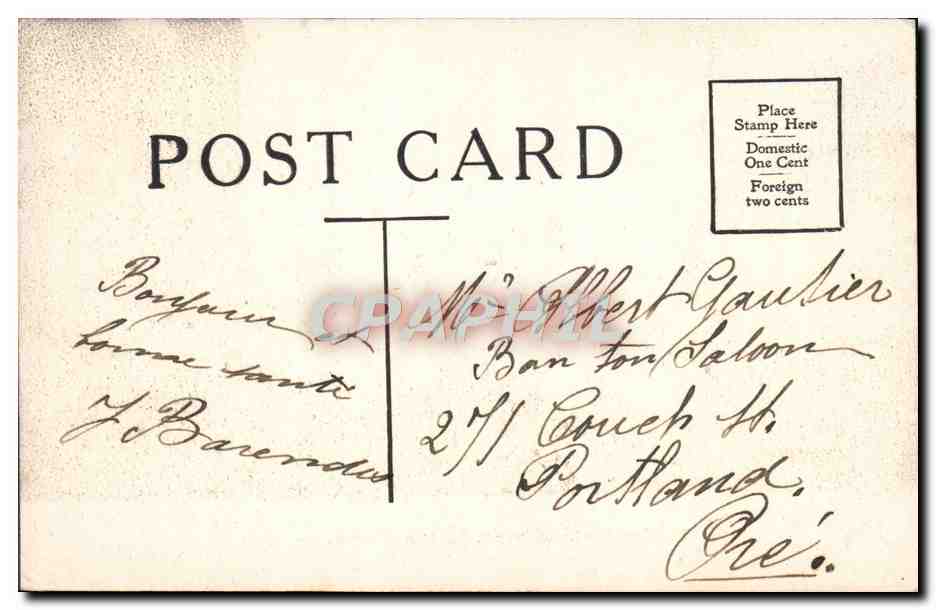 POST CARD
Place
Stamp Here
Domestic
One Cent
Foreign
two cents
Bonjour et
bonne santé
J Barendes
Mr Albert Gautier
Bon ton Saloon
271 Couch St.
Portland.
Oré.
CPAPHIL